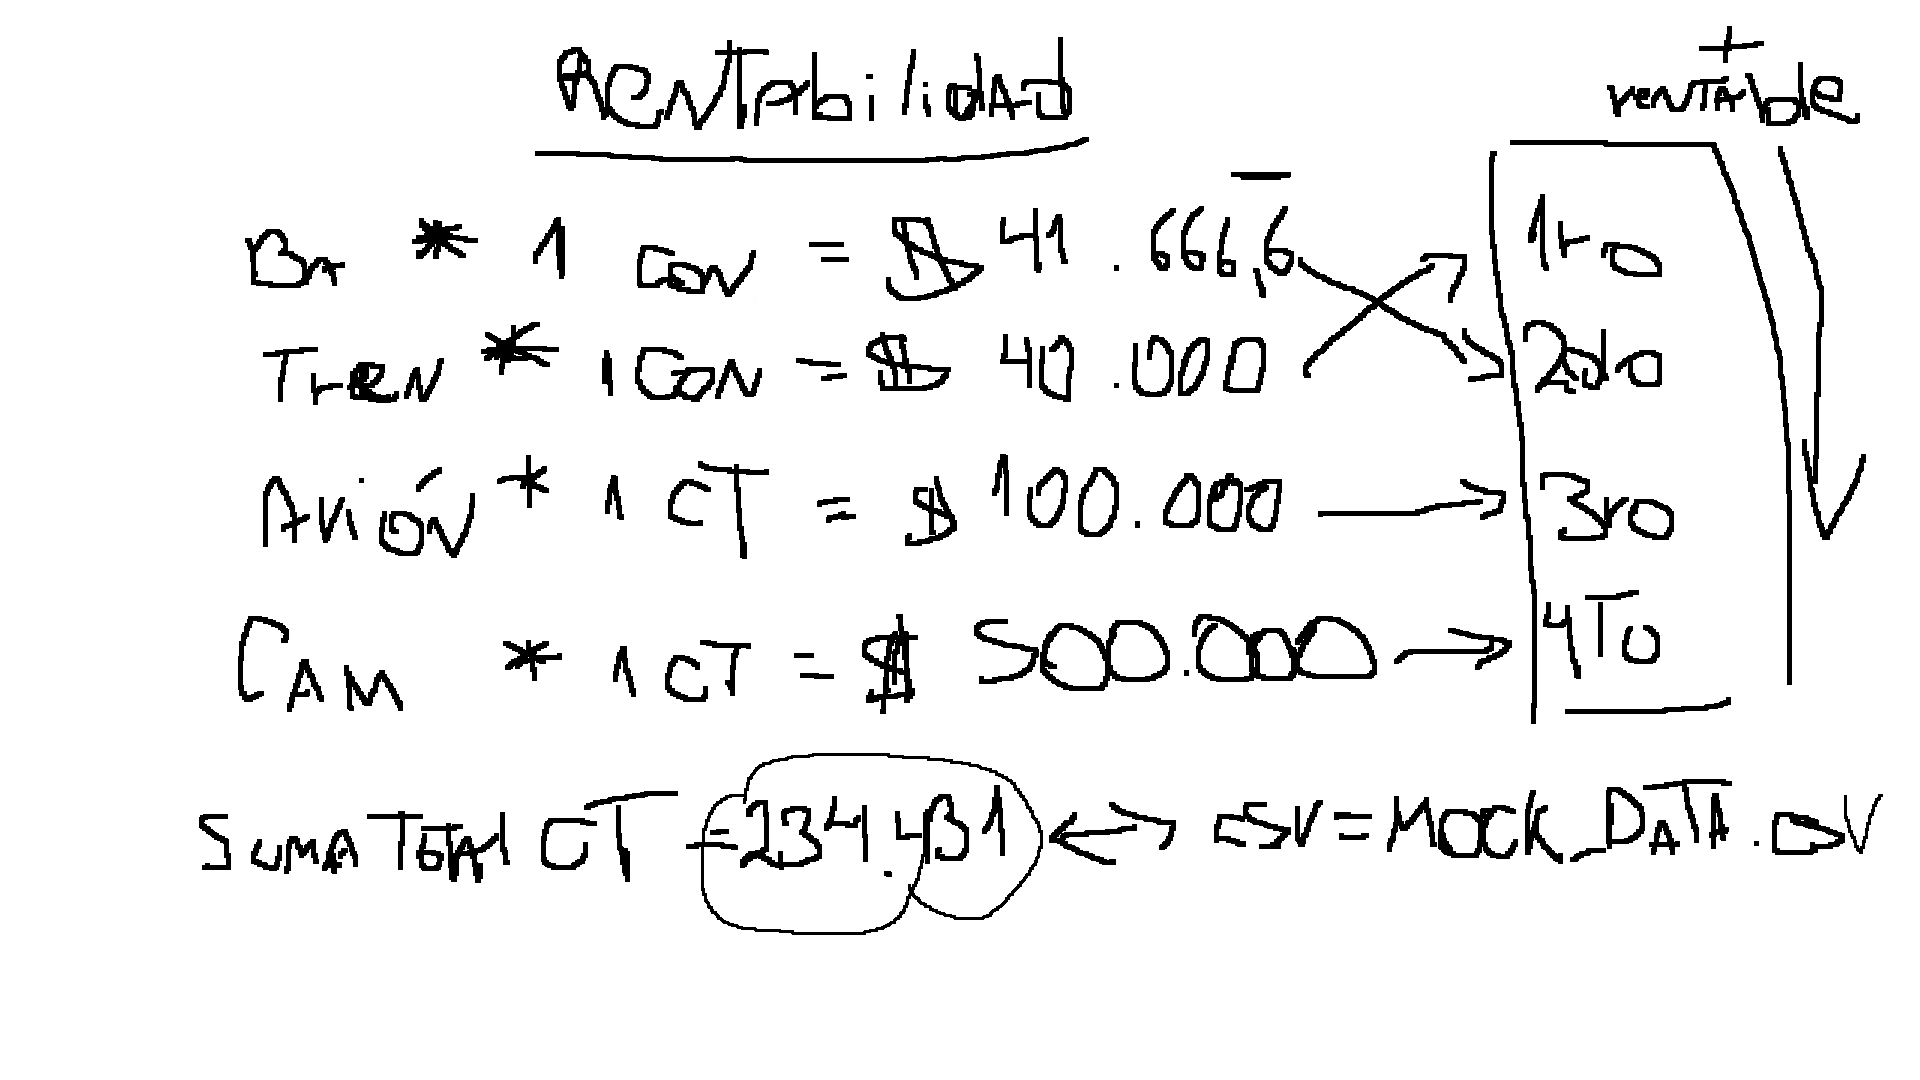 RENTAbiliDAD
+
renTAble
BA * 1 CON = $ 41.666,6 1ro
TREN * 1 CON = $ 40.000 2do
AVIÓN * 1 CT = $ 100.000 3ro
CAM * 1 CT = $ 500.000 4To
SUMA TOTAl CT = 234.431 CSV = MOCK_DATA.CSV